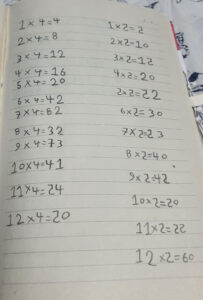 1×4=4
2×4=8
3×4=12
4×4=16
5×4=20
6×4=42
7×4=82
8×4=32
9×4=73
10×4=41
11×4=24
12×4=20
1×2=2
2×2=10
3×2=12
4×2=20
2×2=22
6×2=30
7×2=23
8×2=40
9×2=42
10×2=20
11×2=22
12×2=60